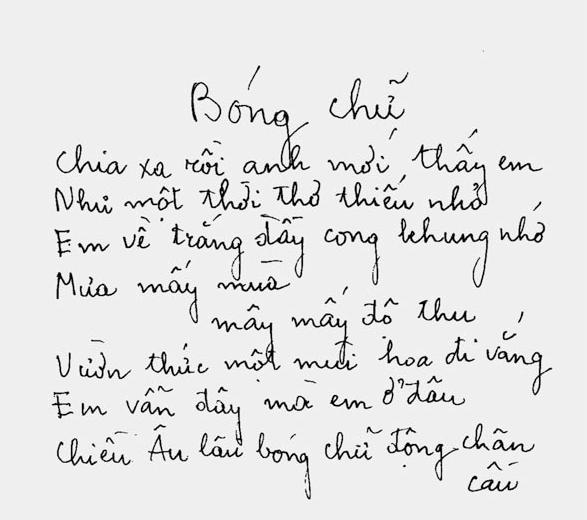 Bóng chữ
Chia xa rồi anh mới thấy em
Như một thời thơ thiếu nhỏ
Em về trắng đầy cong khung nhớ
Mưa mấy mùa
mây mấy độ thu
Vườn thức một mùi hoa đi vắng
Em vẫn đây mà em ở đâu
Chiều Âu lâu bóng chữ động chân
cầu